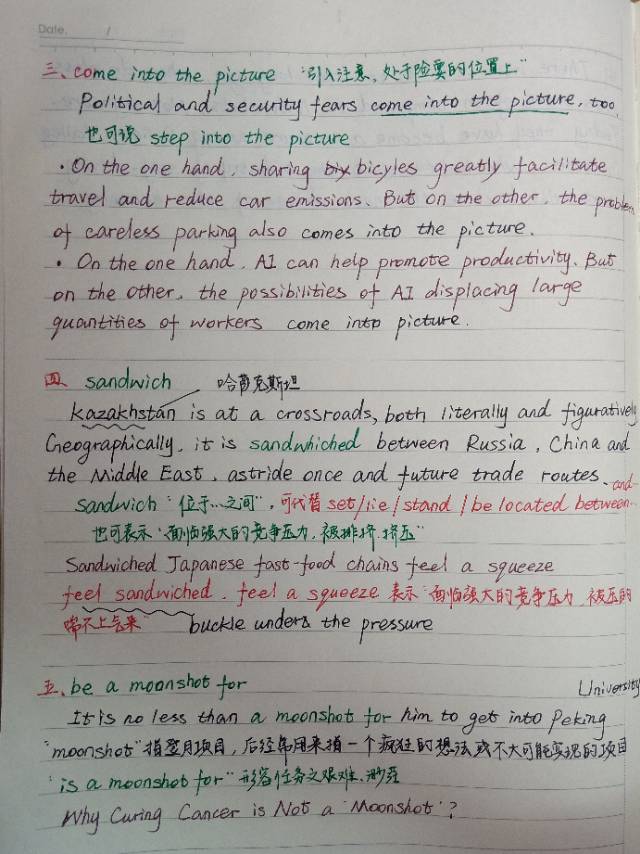 Date. /
三、come into the picture “引入注意，处于险要的位置上”
Political and security fears come into the picture, too
也可说 step into the picture
· On the one hand, sharing bicyles greatly facilitate
travel and reduce car emissions. But on the other, the problem
of careless parking also comes into the picture.
· On the one hand, AI can help promote productivity. But
on the other, the possibilities of AI displacing large
quantities of workers come into picture.
四、sandwich 哈萨克斯坦
kazakhstan is at a crossroads, both literally and figuratively
Geographically, it is sandwhiched between Russia, China and
the Middle East, astride once and future trade routes.
sandwich “位于…之间”，可代替 set/lie/stand/be located between…and…
也可表示“面临强大的竞争压力，被排挤，挤压”
Sandwiched Japanese fast-food chains feel a squeeze
feel sandwiched, feel a squeeze 表示“面临强大的竞争压力，被压的
喘不上气来” buckle under the pressure
五、be a moonshot for
It is no less than a moonshot for him to get into Peking University
“moonshot”指登月项目，后经常用来指一个疯狂的想法或不大可能实现的项目
“is a moonshot for”形容任务之艰难、渺茫
Why Curing Cancer is Not a ‘Moonshot’?